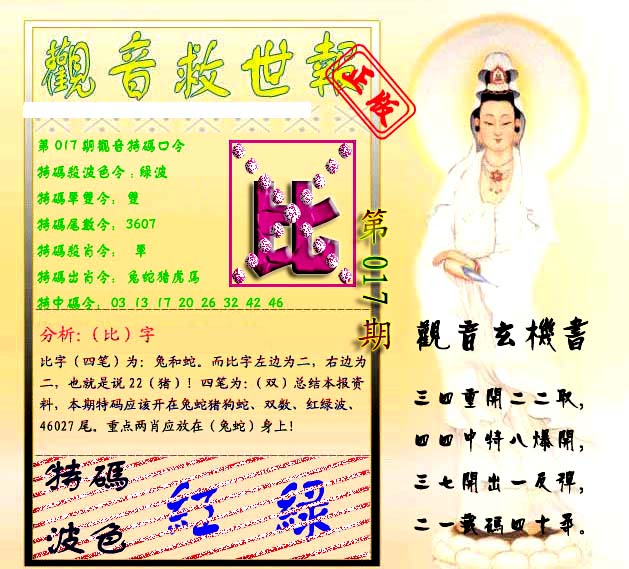 觀音救世報
正版
第017期觀音特碼口令
特碼殺波色令:綠波
特碼單雙令: 雙
特碼尾數令: 3607
特碼殺肖令: 單
特碼出肖令: 兔蛇豬虎馬
特中碼令: 03 13 17 20 26 32 42 46
比
第017期
分析:（比）字
比字（四笔）为：兔和蛇。而比字左边为二，右边为
二，也就是说22（猪）！四笔为：（双）总结本报资
料，本期特码应该开在兔蛇猪狗蛇、双数、红绿波、
46027尾。重点两肖应放在（兔蛇）身上！
特碼
波色
紅 綠
觀音玄機書
三四重開二二取，
四四中特八爆開，
三七開出一反彈，
二一載碼四十尋。